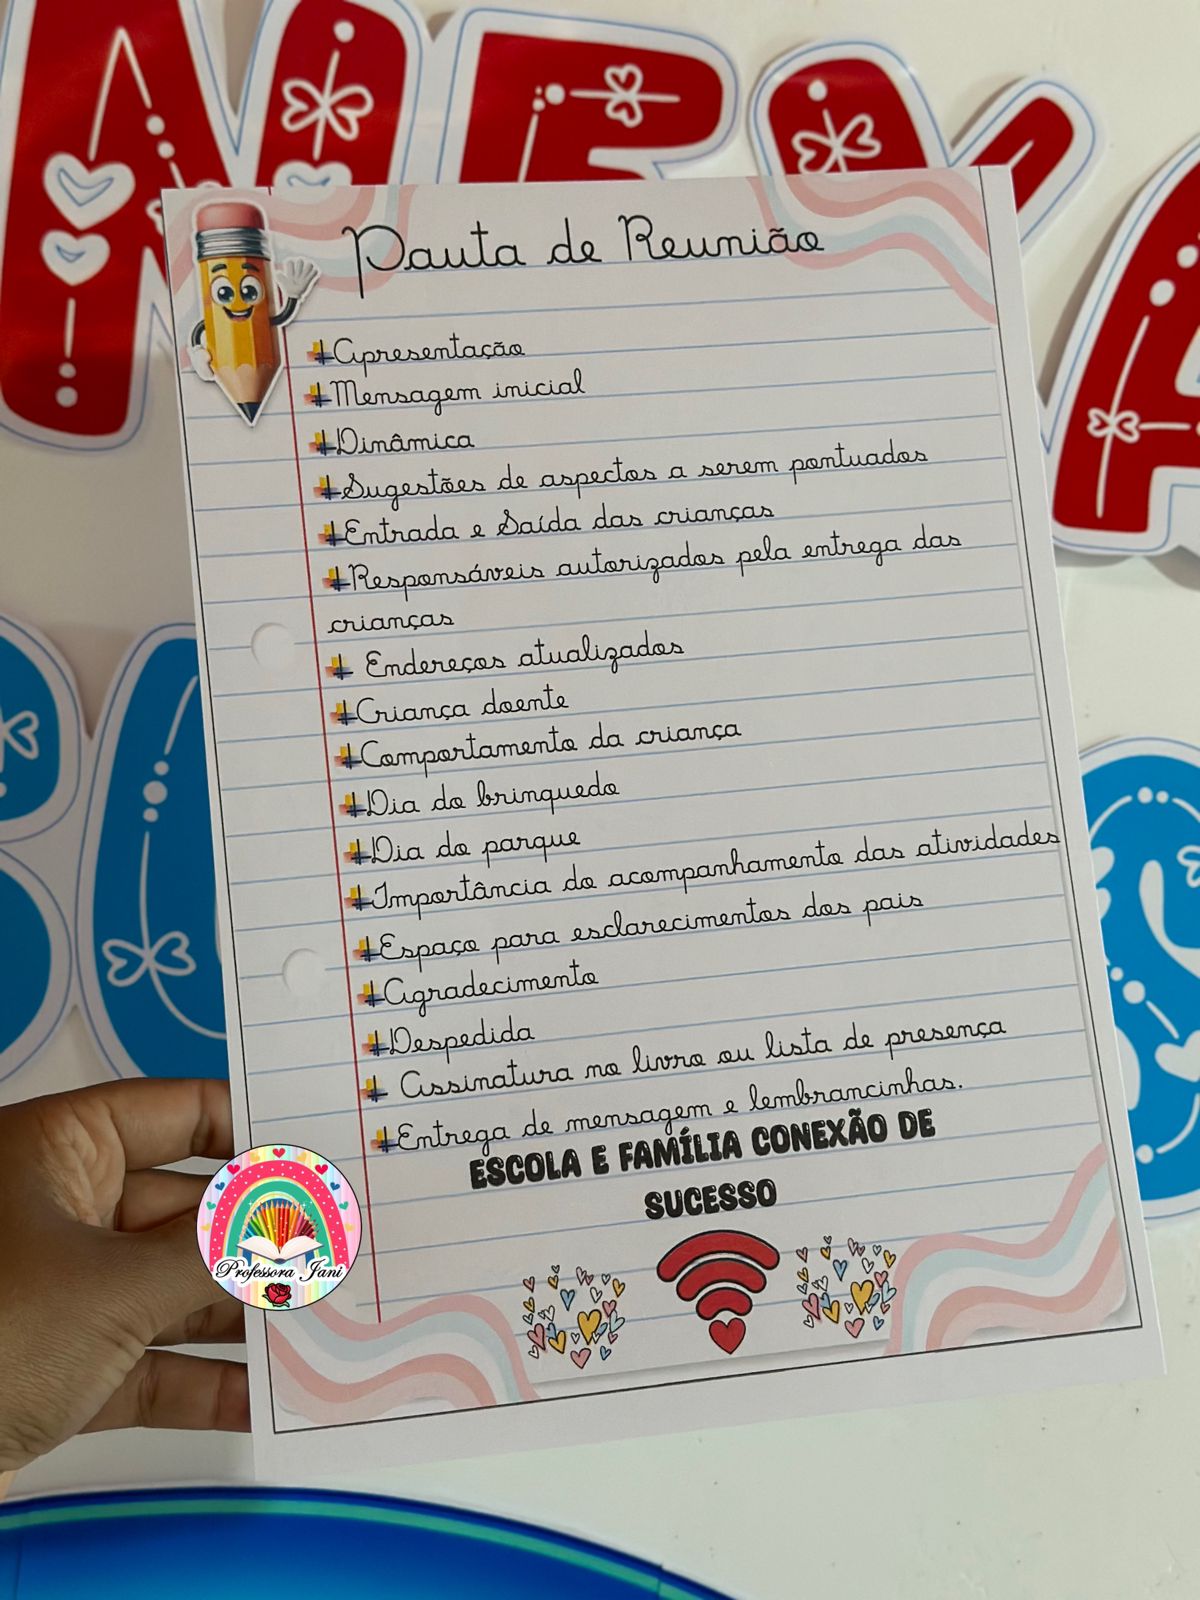 Pauta de Reunião
Apresentação
Mensagem inicial
Dinâmica
Sugestões de aspectos a serem pontuados
Entrada e Saída das crianças
Responsáveis autorizados pela entrega das
crianças
Endereços atualizados
Criança doente
Comportamento da criança
Dia do brinquedo
Dia do parque
Importância do acompanhamento das atividades
Espaço para esclarecimentos dos pais
Agradecimento
Despedida
Assinatura no livro ou lista de presença
Entrega de mensagem e lembrancinhas.
ESCOLA E FAMÍLIA CONEXÃO DE
SUCESSO
Professora Jani